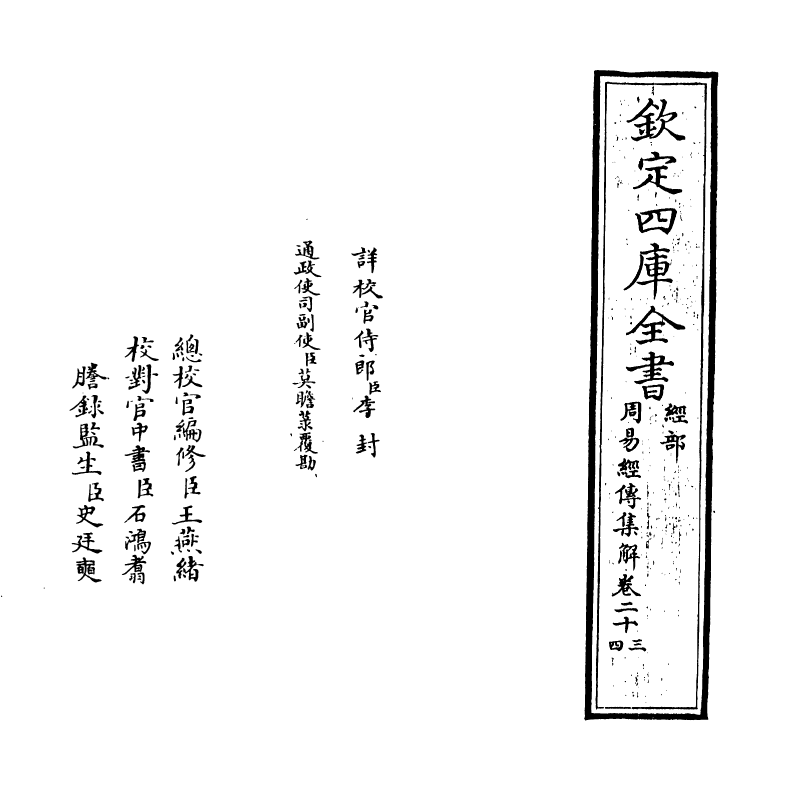 欽定四庫全書
經部
周易經傳集解卷二十三四
詳校官侍郎臣李封
通政使司副使臣莫瞻菉覆勘
總校官編修臣王燕緒
校對官中書臣石鴻翥
謄錄監生臣史廷奭